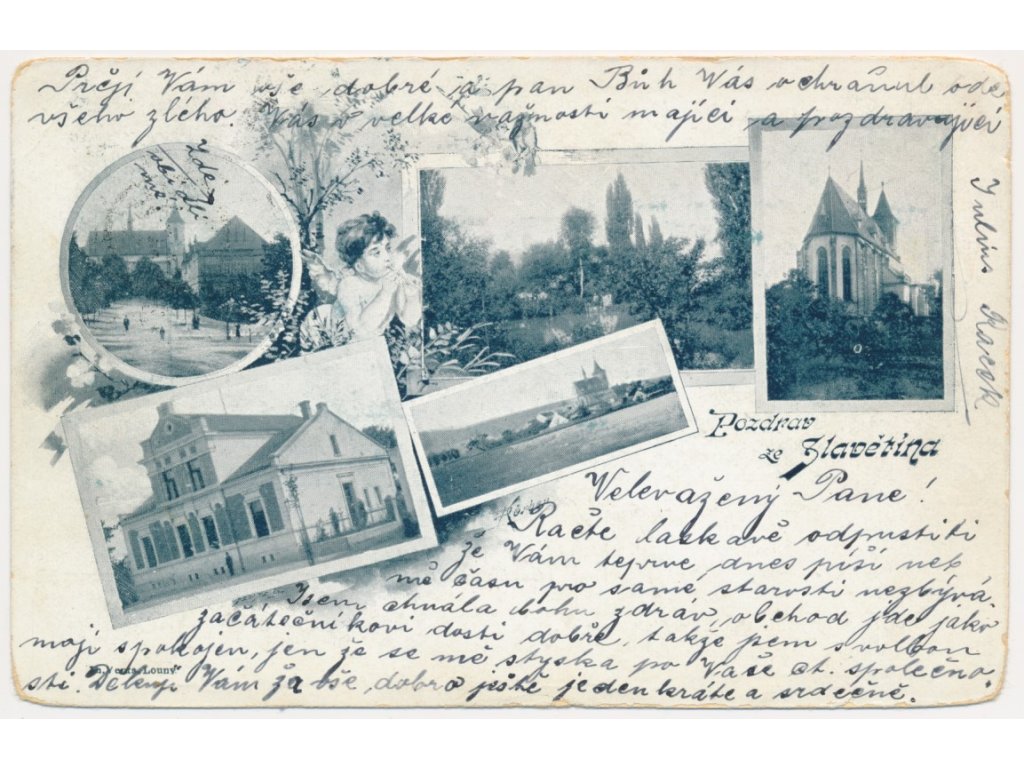 Pozdrav
ze Slavětína
Velevážený Pane!
Račte laskavě odpustiti
že Vám teprve dnes píši neb
mě času pro samé starosti nezbývá.
Jsem chvála bohu zdráv, obchod jde jako
začátečníkovi dosti dobře, takže jsem s volbou
mojí spokojen, jen že se mě stýska po Vaše ct. společno-
sti. Děkuji Vám za vše dobro ještě jedenkráte a srdečně.
Přeji Vám vše dobré a pan Bůh Wás ochránil ode
všeho zlého. Vás v velké vážnosti mající a pozdravující
Julius
Zde
Louny